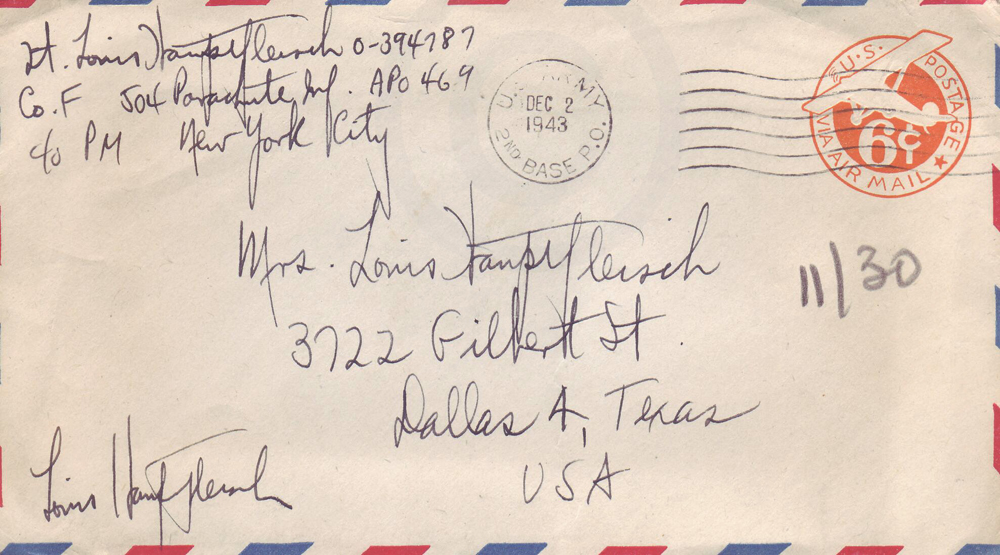 Lt. Louis Hauptfleisch O-394787
Co. F 504 Parachute Inf. APO 469
c/o PM New York City
U.S. ARMY
DEC 2
1943
2ND BASE P.O.
U.S. POSTAGE
6¢
VIA AIR MAIL
Mrs. Louis Hauptfleisch
11/30
3722 Gilbert St.
Dallas 4, Texas
USA
Louis Hauptfleisch